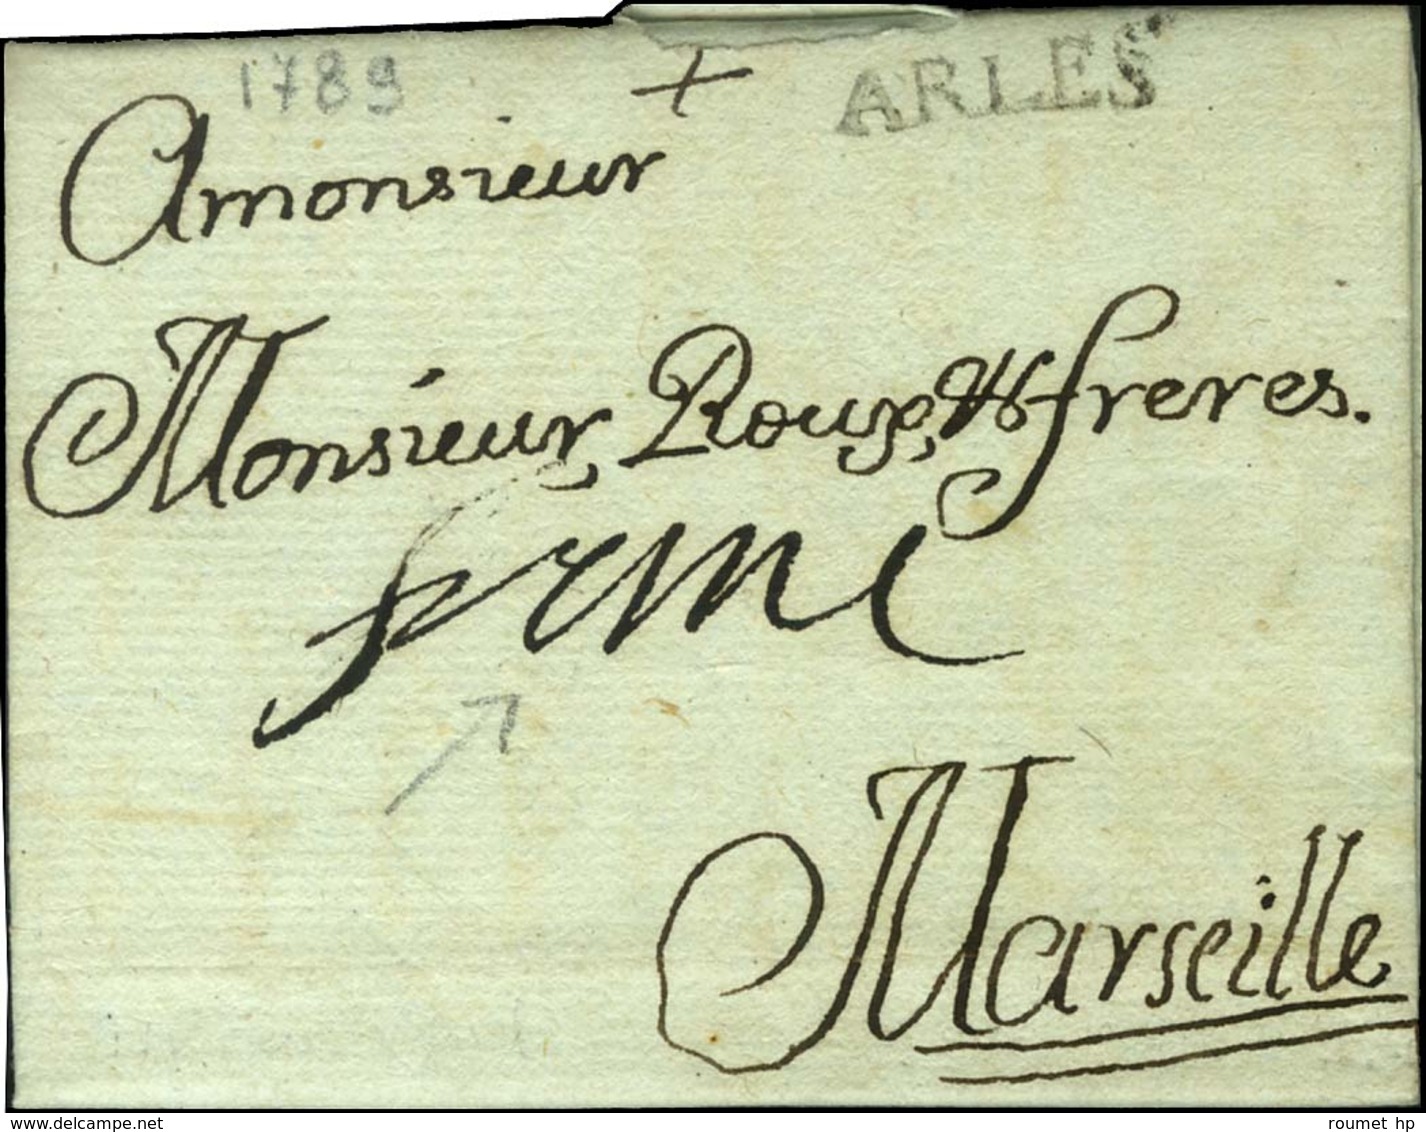 1789
+ ARLES
Amonsieur
Monsieur Roux, & freres.
Marseille
delcampe.net
roumet hp